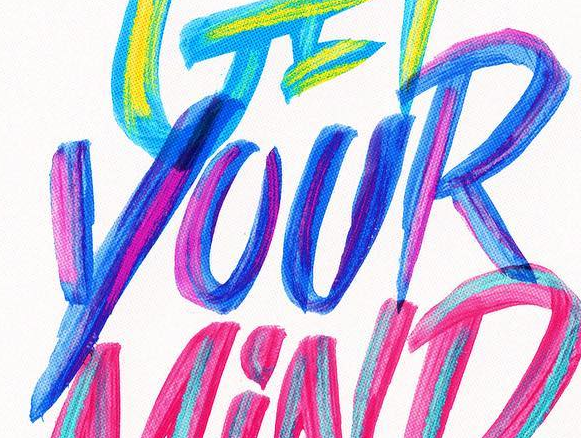 GET
YOUR
MiND